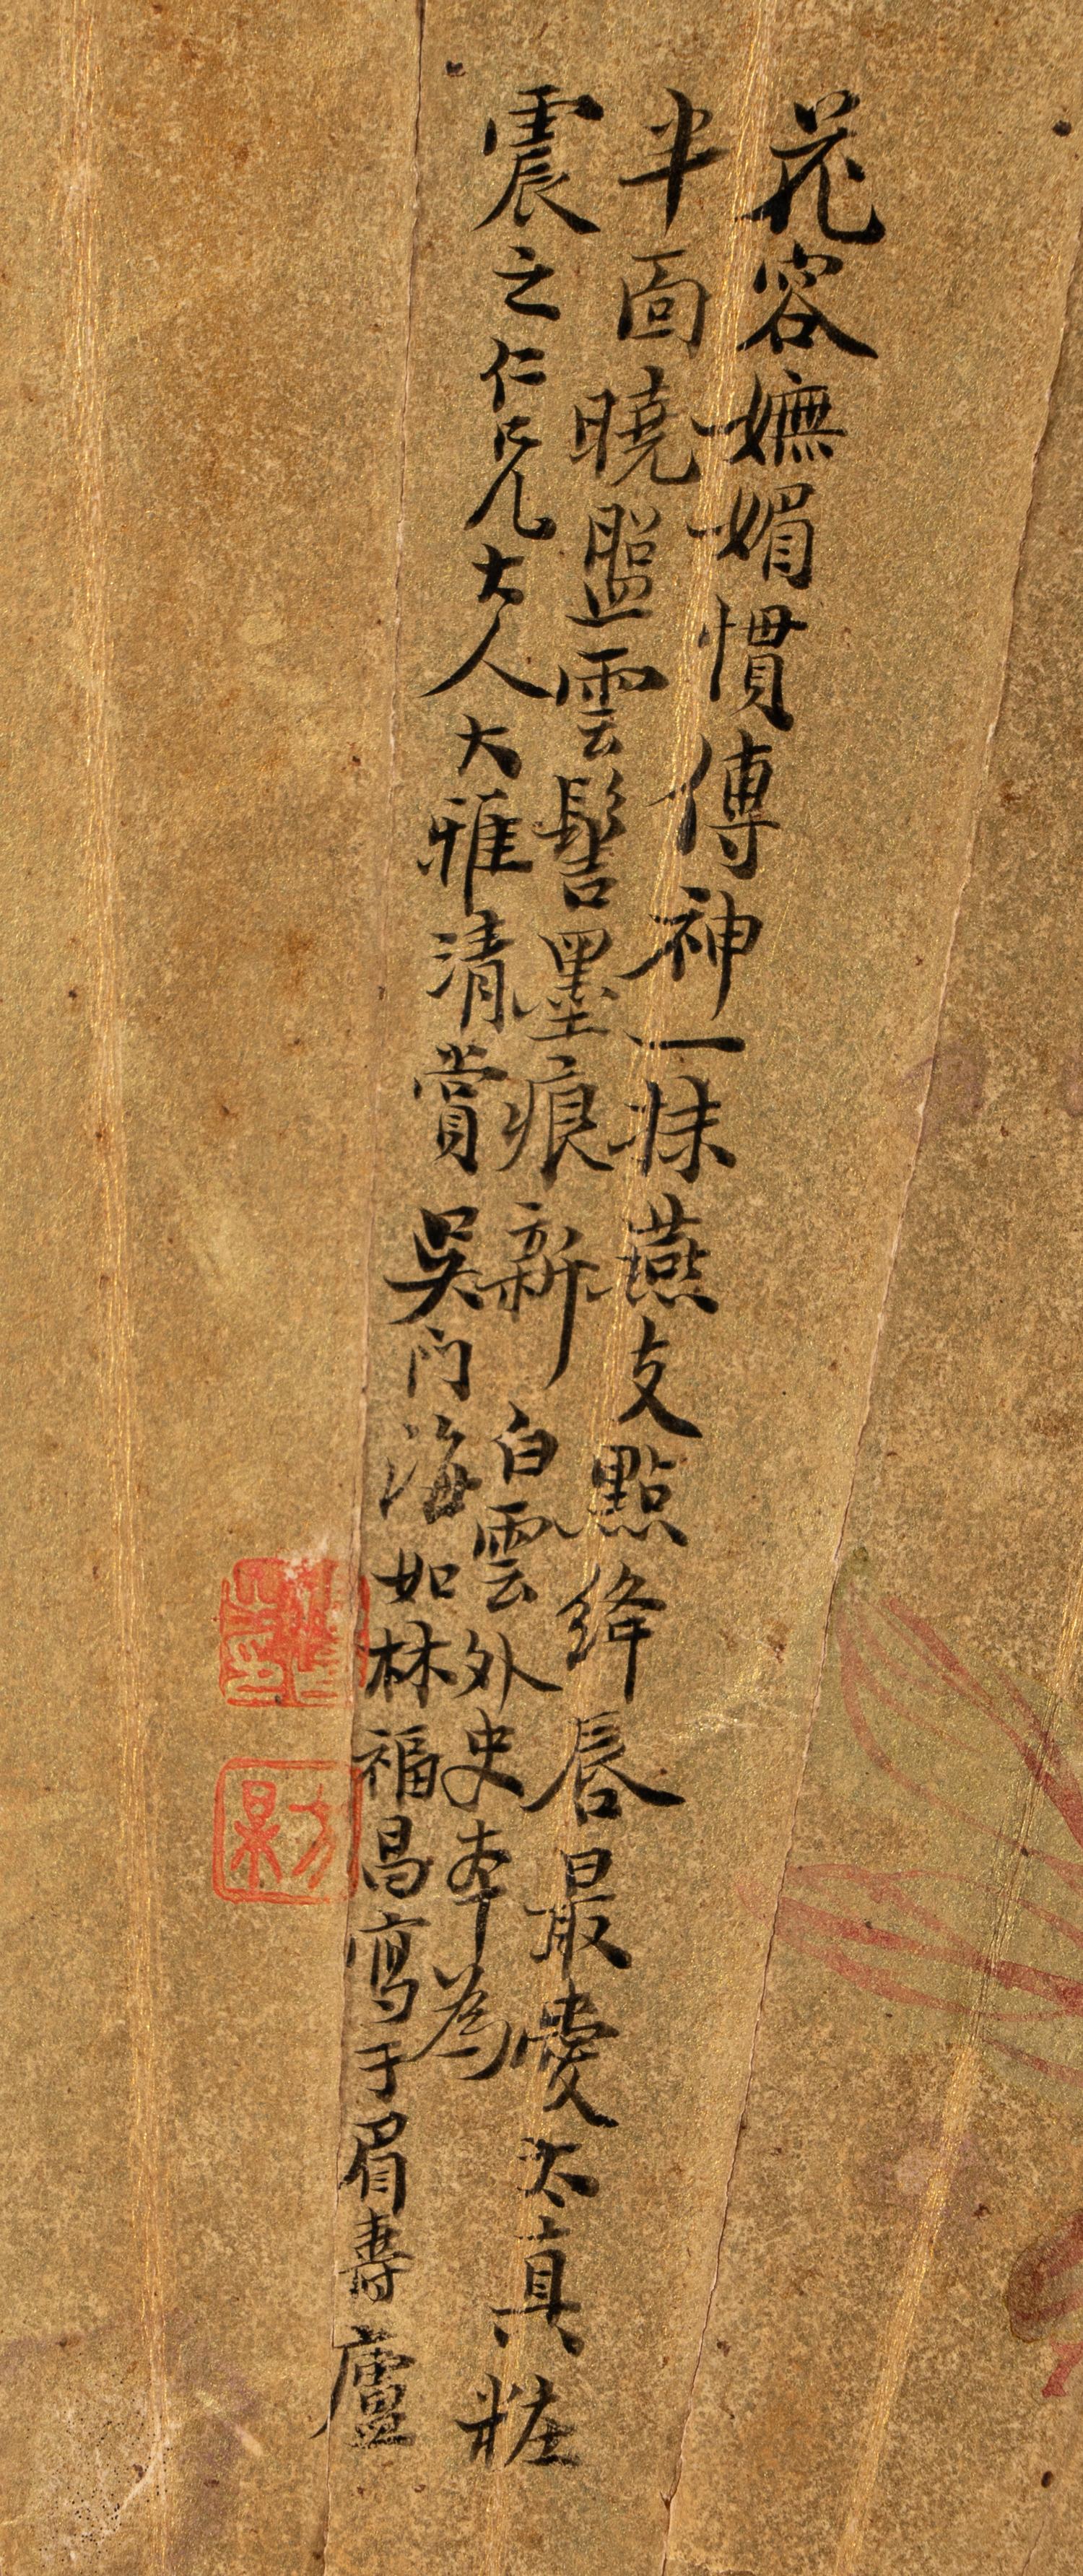 花容嫵媚慣傳神一抹燕支點絳唇最愛太真粧
半面曉盤雲髻墨痕新 白雲外史夲為
震之仁兄大人大雅清賞 吳門海如林福昌寫于眉壽廬